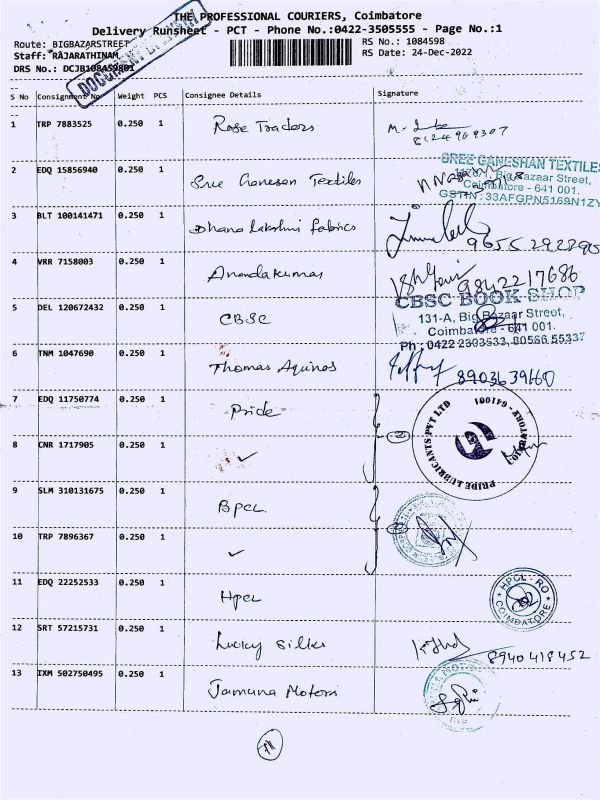 THE PROFESSIONAL COURIERS, Coimbatore
Delivery Runsheet - PCT - Phone No.:0422-3505555 - Page No.:1
Route: BIGBAZARSTREET
RS No.: 1084598
Staff: RAJARATHINAM
RS Date: 24-Dec-2022
DRS No.: DCJB108459801
DOCUMENT
S No Consignment No. Weight PCS Consignee Details Signature
1 TRP 7883525 0.250 1 Rose Traders
8124969307
2 EDQ 15856940 0.250 1 Sree Ganesan Textiles
SREE GANESHAN TEXTILES
Big Bazaar Street,
Coimbatore - 641 001.
GSTIN : 33AFGPN5169N1ZY
3 BLT 100141471 0.250 1 Dhana lakshmi fabrics
4 VRR 7158003 0.250 1 Anandakumar 9842217686
5 DEL 120672432 0.250 1 CBSC
CBSC BOOK SHOP
131-A, Big Bazaar Street,
Coimbatore - 641 001.
Ph : 0422 2303533, 80566 55337
6 TNM 1047690 0.250 1 Thomas Aquinas 8903639660
7 EDQ 11750774 0.250 1 Pride
PRIDE LUBRICANTS PVT LTD
COIMBATORE - 641001
8 CNR 1717905 0.250 1 ✓
9 SLM 310131675 0.250 1 BPCL
10 TRP 7896367 0.250 1 ✓
11 EDQ 22252533 0.250 1 HPCL
HPCL - RO
COIMBATORE
12 SRT 57215731 0.250 1 Lucky Silks 8940418452
13 IXM 502750495 0.250 1 Jamuna Motors